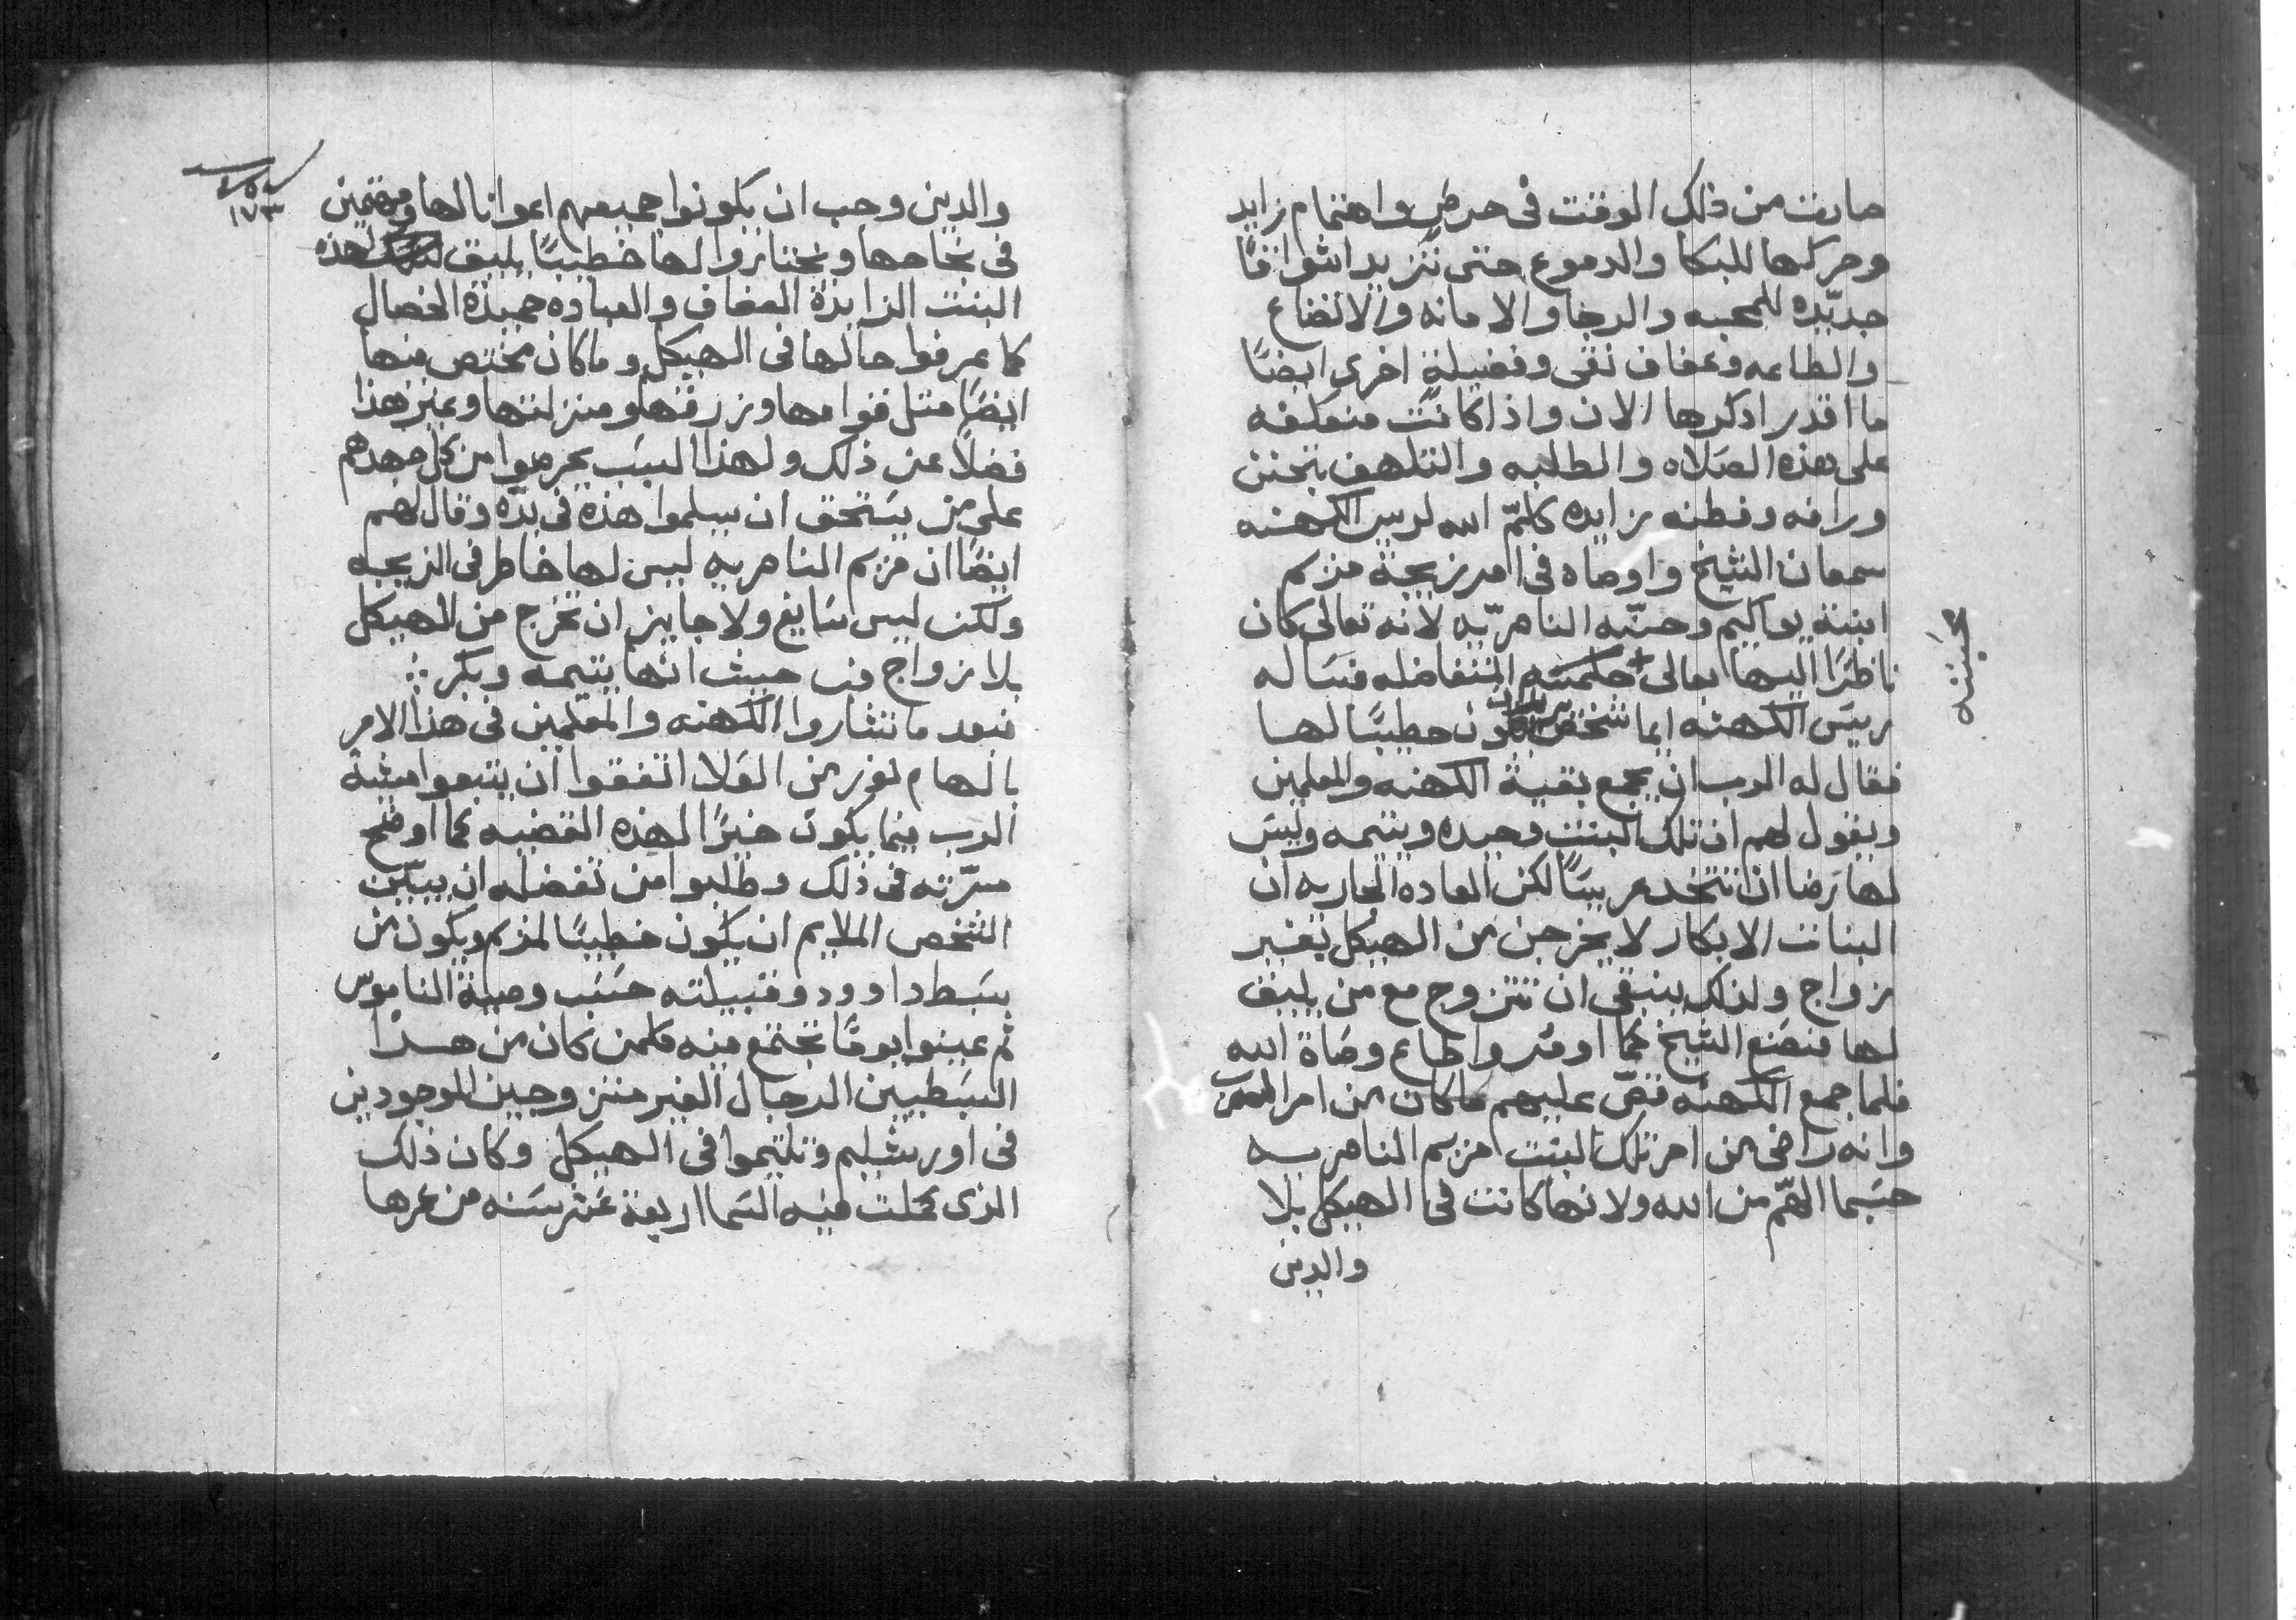 صارت من ذلك الوقت فى حرص واهتمام زايد
وحركها للبكا والدموع حتى تتزيد اشواقا
جديده للمحبه والرجا والامانه والاتضاع
والطاعه وعفاف نقى وفضيلة اخرى ايضًا
ما اقدر اذكرها الان واذا كانت منعكفه
على هذه الصلاه والطلبه والتلهف بتحنن
ورافه وفطنه زايده كلّم الله لريس الكهنه
سمعان الشيخ واوصاه فى امر زيجة مريم
ابنة يواكيم وحنّه الناصريّه لانه تعالى كان
ناظرًا اليها بعالى حكمته المتفاضله فساله
محبته
ريس الكهنه ايما شخص يكون خطيبًا لها
فقال له الرب ان يجمع بقية الكهنه والمعلمين
ويقول لهم ان تلك البنت وحيده ويتيمه وليس
لها رضا ان تتخد عريسًا لكن العاده الجاريه ان
البنات الابكار لا يخرجن من الهيكل بغير
زواج ولذلك ينبغى ان تتزوج مع من يليق
لها فصنع الشيخ كما اومر واطاع وصاة الله
فلما جمع الكهنه قصّ عليهم ماكان من امر الرب
وانه راضى من امر تلك البنت مريم الناصريه
حسبما الهّم من الله ولانها كانت فى الهيكل بلا
والدين
١٧٣
والدين وجب ان يكونوا جميعهم اعوانا لها ومهتمين
فى نجاحها ويختاروا لها خطيبًا يليق لهذه
البنت الزايدة العفاف والعباده حميدة الخصال
كما عرفوا حالها فى الهيكل وما كان مختص منها
ايضًا متل قوامها ورزقتها ومنزلتها وغير هذا
فضلاً عن ذلك ولهذا السبب يحرصوا من كل جهدهم
على من يستحق ان يسلموا هذه فى يدّه وقال لهم
ايضًا ان مريم الناصريه ليس لها خاطر فى الزيجه
ولكن ليس سايغ ولا جايز ان تخرج من الهيكل
بلا زواج من حيث انها يتيمه وبكر
فبعد ما تشاروا الكهنه والمعلمين فى هذا الامر
بالهام نور من العلا اتفقوا ان يتبعوا مشية
الرب فيما يكون خيرًا لهذه القضيه كما اوضح
مسرّته فى ذلك وطلبوا من تفضله ان يبيّن
الشخص الملايم ان يكون خطيبًا لمريم ويكون من
سبط داوود وقبيلته حسب وصية الناموس
ثم عينوا يومًا تجتمع فيه كلمن كان من هدا
السبطيين الرجال الغير متزوجين الموجودين
فى اورشليم وتلتيموا فى الهيكل وكان ذلك
الذى كملت فيه السما اربعة عشر سنه من عمرها